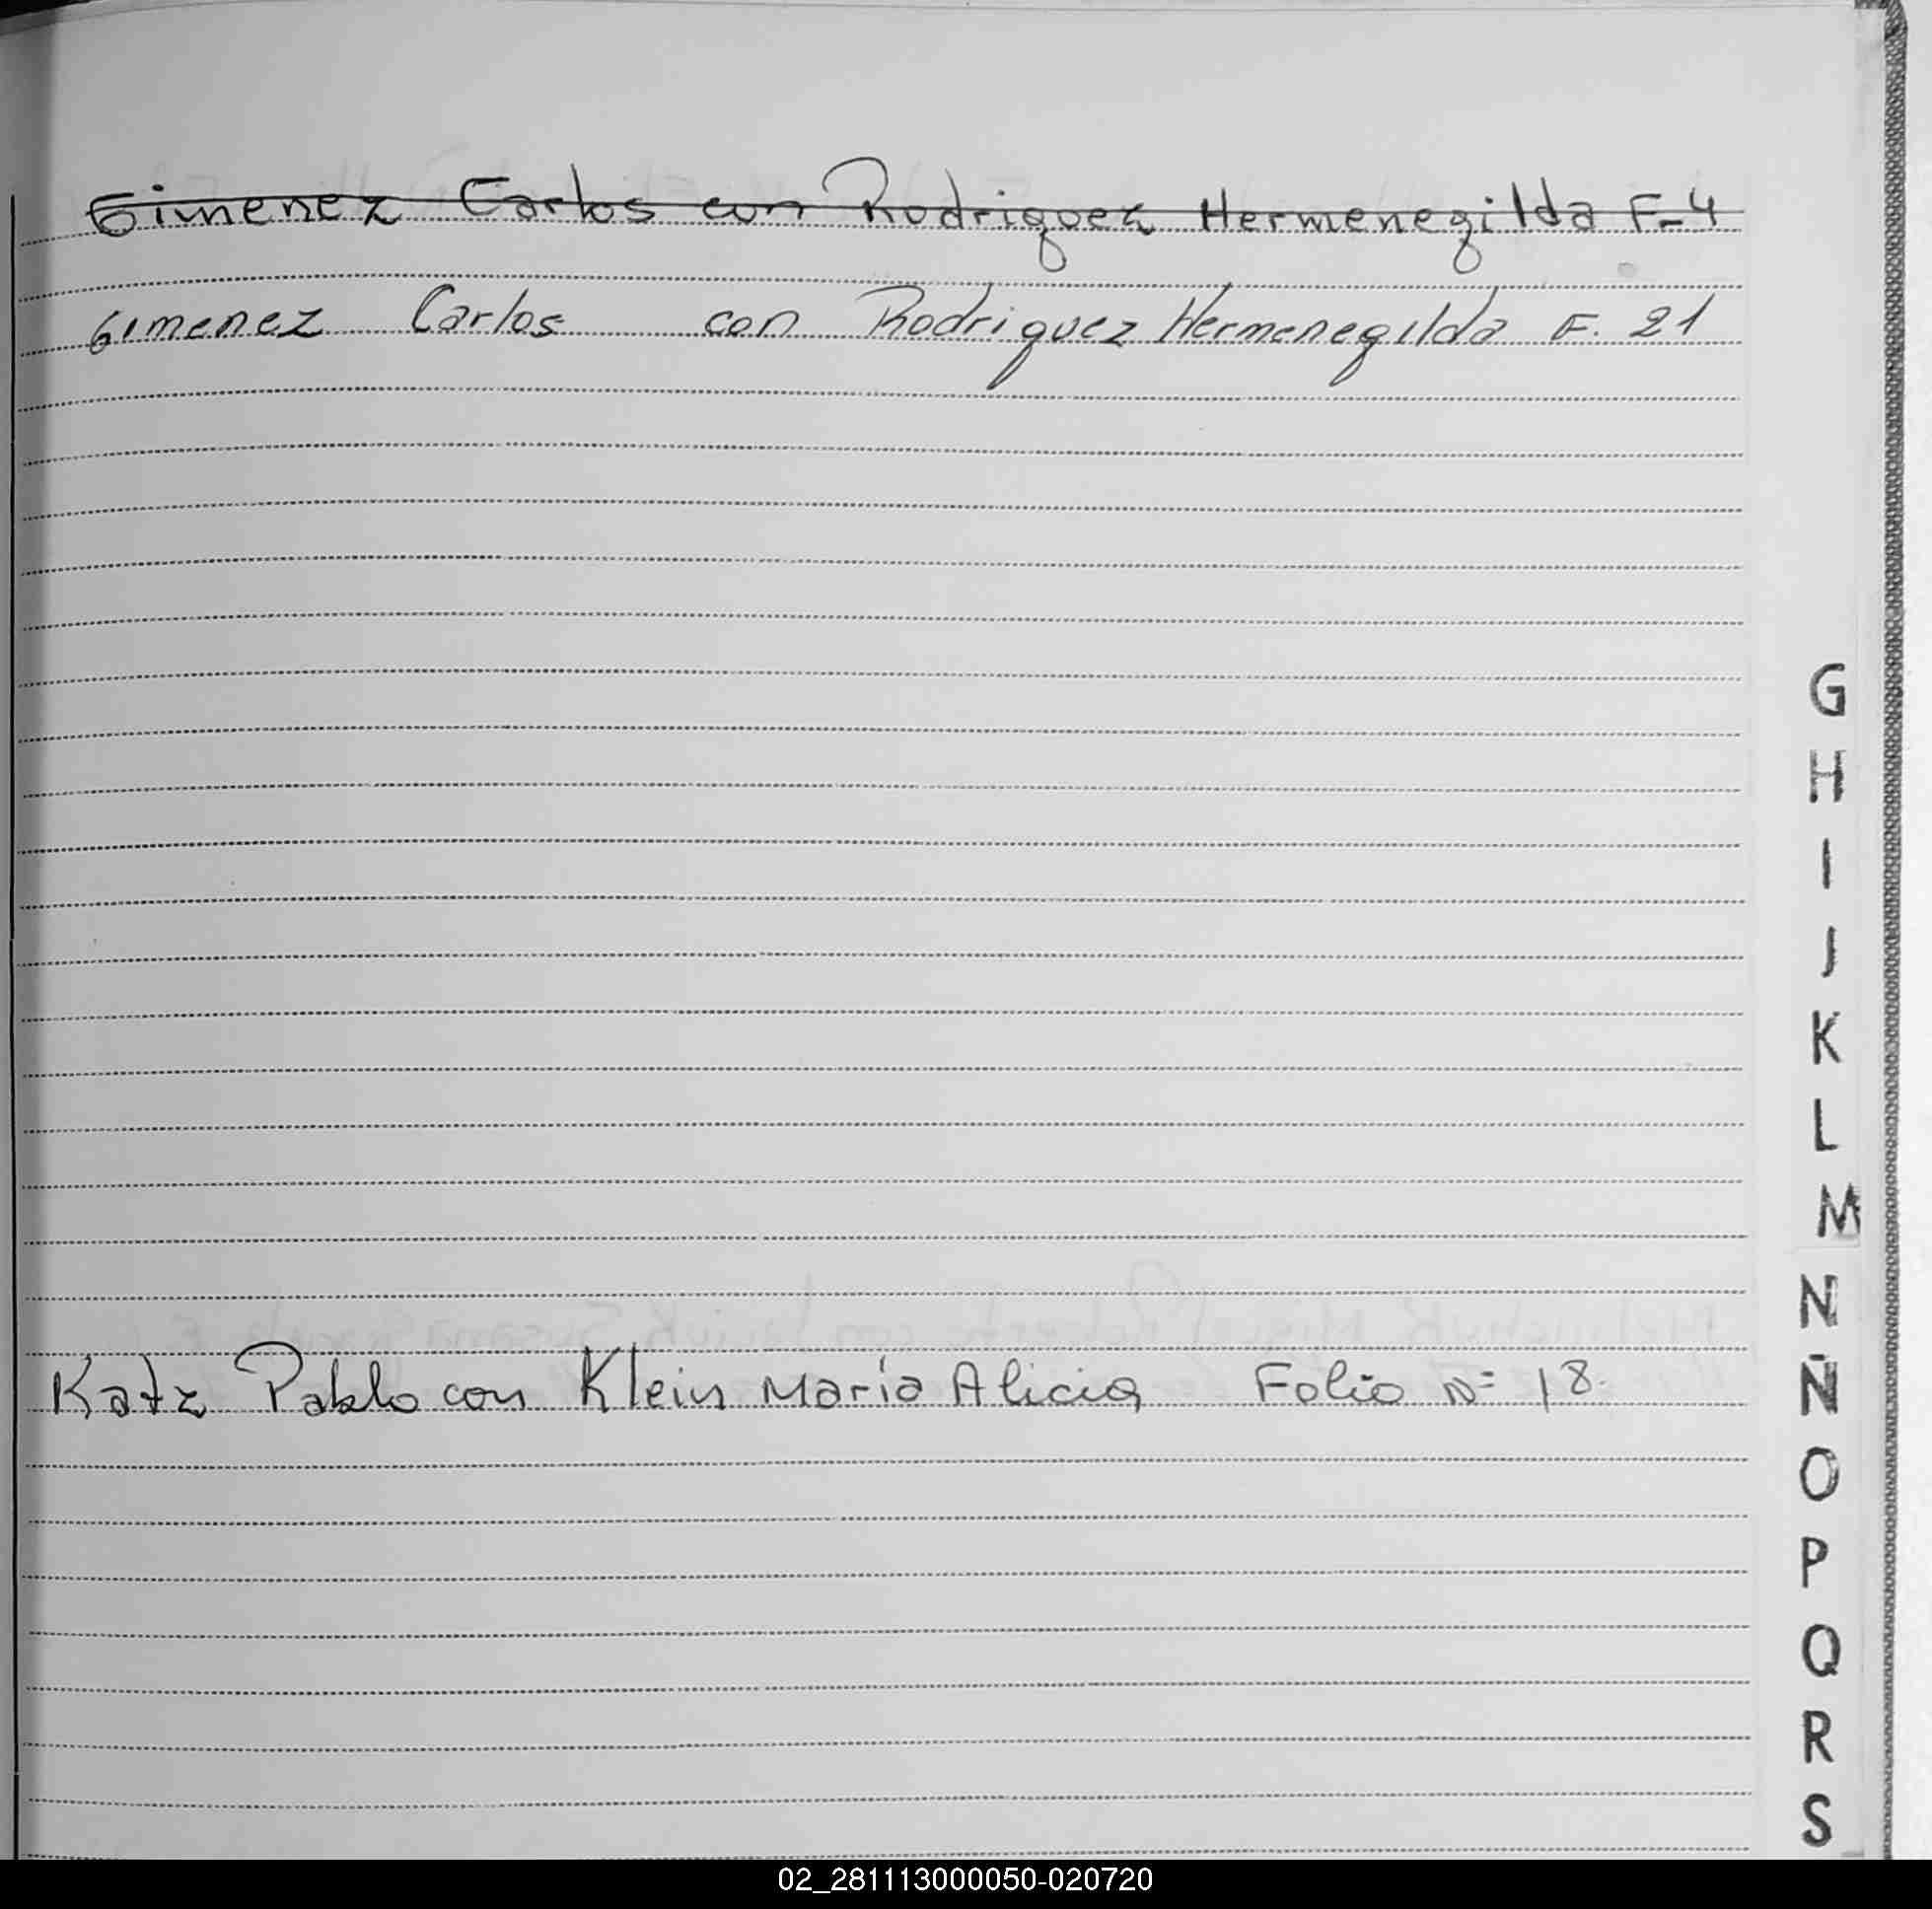 Gimenez Carlos con Rodriguez Hermenegilda F-4
Gimenez Carlos con Rodriguez Hermenegilda F. 21
Katz Pablo con Klein María Alicia Folio Nº 18.
G
H
I
J
K
L
M
N
Ñ
O
P
Q
R
S
02_281113000050-020720